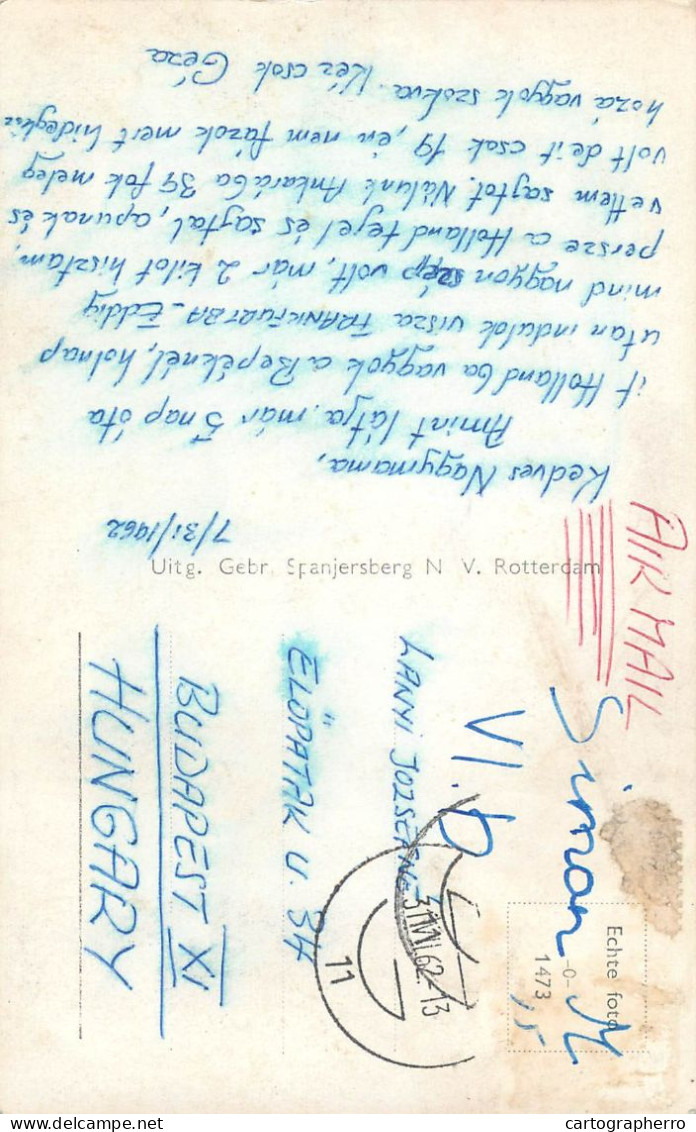 7/31/1962
Kedves Nagymama,
Amint látja már 5 nap óta
it Hollandba vagyok a Bepéknél, holnap
utan indulok visza FRANKFURTBA - Eddig
mind nagyon szép volt, már 2 kilot hisztam,
persze a Holland tejel és sajtal, apunak és
vettem sajtot. Nálunk Ankarába 34 fok meleg
volt de it csak 19, én nem fázok mert hideghöz
hozá vagyok szokva. Kéz csok Géza
Uitg. Gebr. Spanjersberg N V. Rotterdam
AIR MAIL
Simon M
1,5
VI. b
LANYI JOZSEFNE
ELÖPATAK U. 34
BUDAPEST XI
HUNGARY
Echte foto
-0-
1473
31 VII 62. 13
11
cartographerro